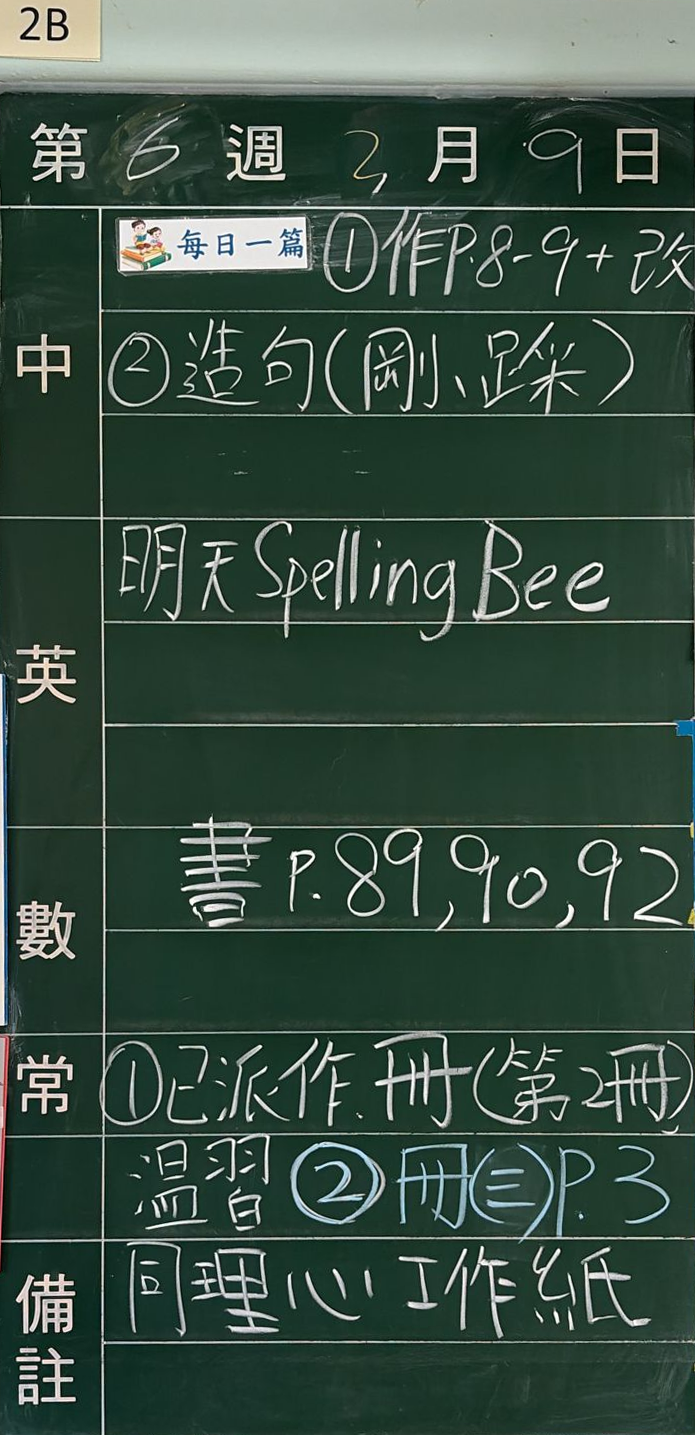 2B
第 6 週 2 月 9 日
中
每日一篇 ①作P.8-9+改
②造句(剛、踩)
英
明天 Spelling Bee
數
書 P.89,90,92
常
①已派作.冊(第2冊)
溫習 ②冊(三)P.3
備註
同理心工作紙